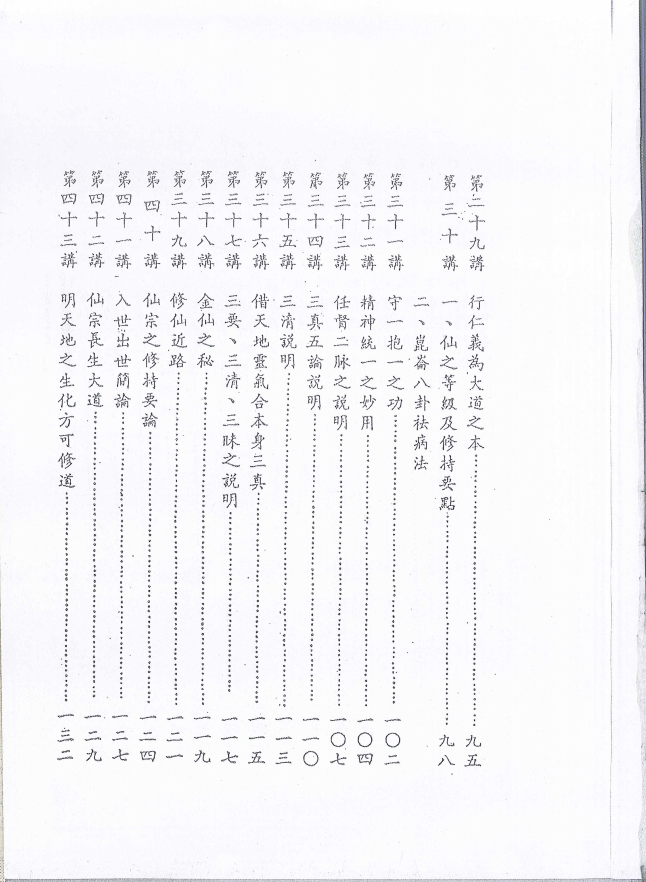 第二十九講 行仁義為大道之本……九五
第三十講 一、仙之等級及修持要點……九八
二、崑崙八卦祛病法
第三十一講 守一抱一之功……一〇二
第三十二講 精神統一之妙用……一〇四
第三十三講 任督二脉之説明……一〇七
第三十四講 三真五論説明……一一〇
第三十五講 三清説明……一一三
第三十六講 借天地靈氣合本身三真……一一五
第三十七講 三要、三清、三昧之説明……一一七
第三十八講 金仙之秘……一一九
第三十九講 修仙近路……一二一
第四十講 仙宗之修持要論……一二四
第四十一講 入世出世簡論……一二七
第四十二講 仙宗長生大道……一二九
第四十三講 明天地之生化方可修道……一三二